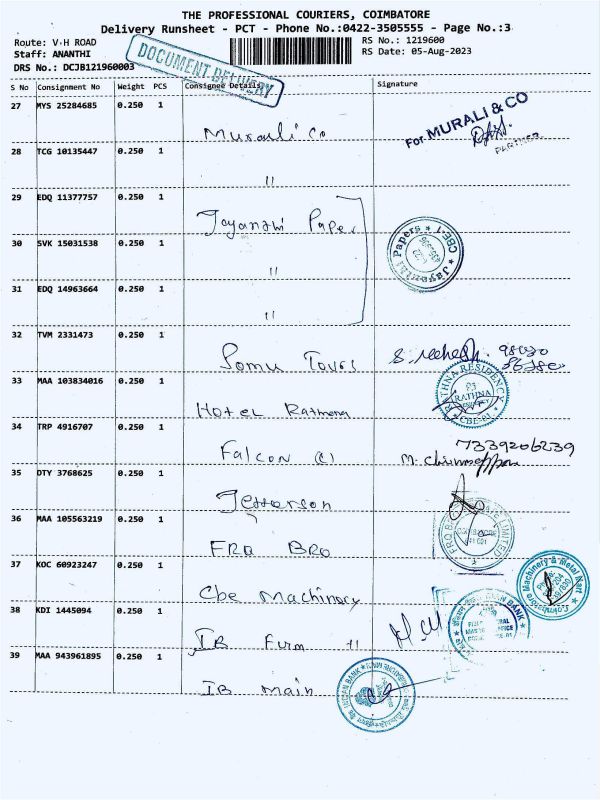 THE PROFESSIONAL COURIERS, COIMBATORE
Delivery Runsheet - PCT - Phone No.:0422-3505555 - Page No.:3
Route: V-H ROAD
RS No.: 1219600
Staff: ANANTHI
RS Date: 05-Aug-2023
DRS No.: DCJB121960003
DOCUMENT DELIVERY
S No Consignment No Weight PCS Consignee Details Signature
27 MYS 25284685 0.250 1
Murali Co
For MURALI & CO
PARTNER
28 TCG 10135447 0.250 1
"
29 EDQ 11377757 0.250 1
Jayanthi Paper
Jayanthi Papers * CBE-1 *
30 SVK 15031538 0.250 1
"
31 EDQ 14963664 0.250 1
"
32 TVM 2331473 0.250 1
Somu Tours
33 MAA 103834016 0.250 1
Hotel Rathna
RATHNA RESIDENCY
RATHNA
CBE-01
34 TRP 4916707 0.250 1
Falcon (C)
7339206239
35 DTY 3768625 0.250 1
Jefferson
36 MAA 105563219 0.250 1
FRQ BRO
37 KOC 60923247 0.250 1
Cbe Machinary
Coimbatore Machinery & Metal Mart
38 KDI 1445094 0.250 1
IB Firm "
INDIAN BANK
39 MAA 943961895 0.250 1
IB Main
INDIAN BANK